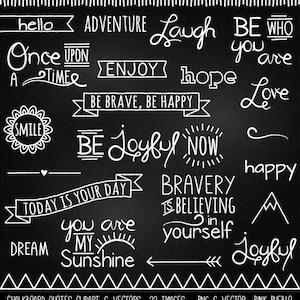 hello
ADVENTURE
Laugh
BE WHO
you are
Once UPON
A TIME
ENJOY
hope
Love
BE BRAVE, BE HAPPY
SMILE
BE Joyful NOW
happy
TODAY IS YOUR DAY
BRAVERY
IS BELIEVING
in
yourself
you are
MY
Sunshine
DREAM
Joyful
CHALKBOARD QUOTES CLIPART & VECTORS 22 IMAGES PNG & VECTOR PINK PUEBLO